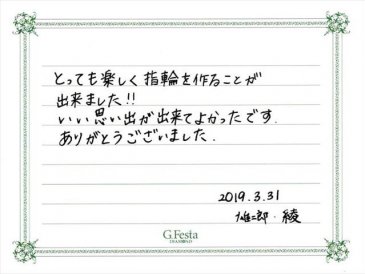 とっても楽しく指輪を作ることが
出来ました!!
いい思い出が出来てよかったです.
ありがとうございました.
2019.3.31
雄二郎・綾
G.Festa
DIAMOND